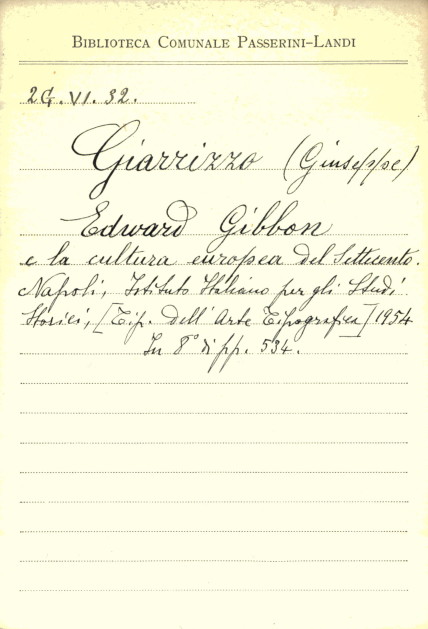 BIBLIOTECA COMUNALE PASSERINI-LANDI
2G.VI.32.
Giarrizzo (Giuseppe)
Edward Gibbon
e la cultura europea del Settecento.
Napoli, Istituto Italiano per gli Studi
Storici, [Tip. dell'Arte Tipografica] 1954
In 8° di pp. 534.